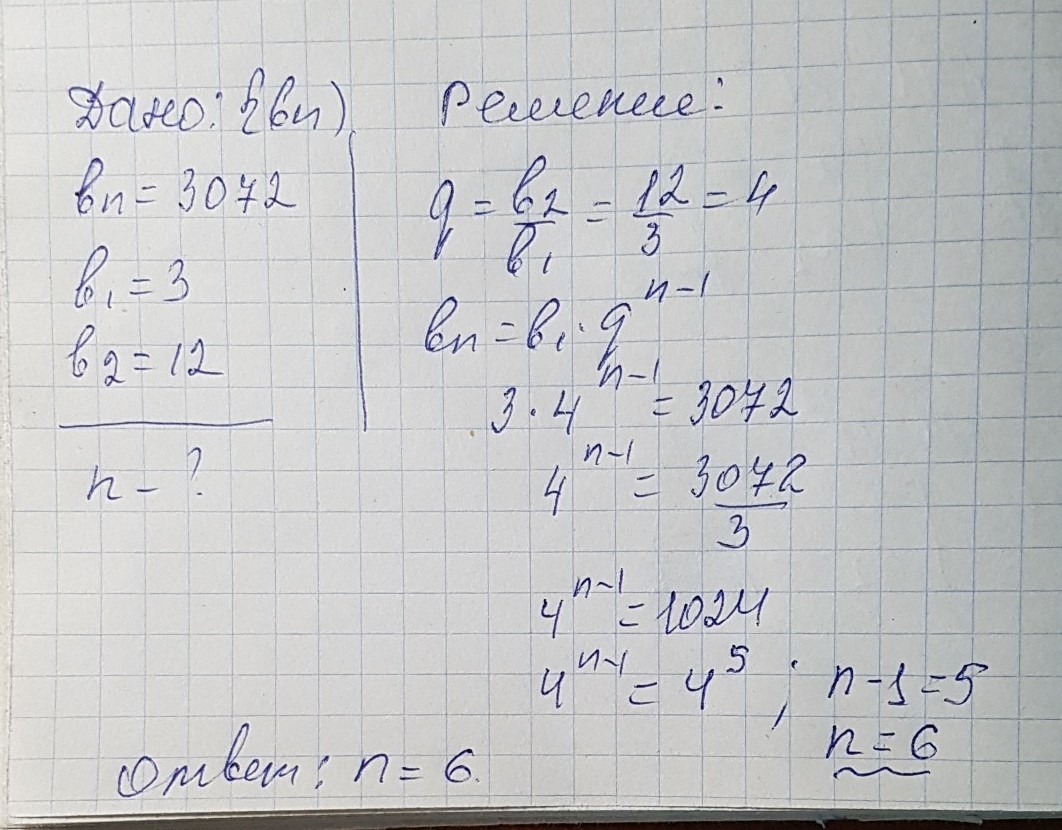 Дано: {bn)
bn = 3072
b₁ = 3
b₂ = 12
n - ?
Решение:
q = b₂/b₁ = 12/3 = 4
bn = b₁ · qⁿ⁻¹
3 · 4ⁿ⁻¹ = 3072
4ⁿ⁻¹ = 3072/3
4ⁿ⁻¹ = 1024
4ⁿ⁻¹ = 4⁵ ; n - 1 = 5
n = 6
Ответ: n = 6.